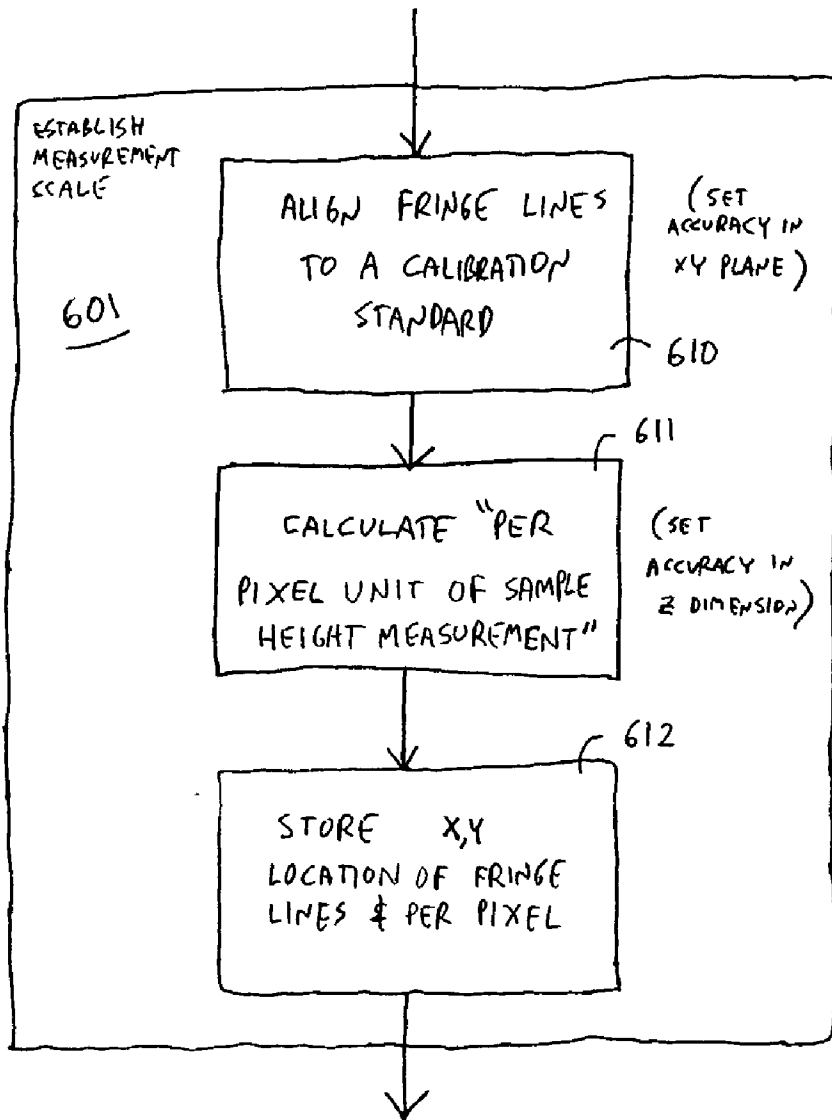 ESTABLISH
MEASUREMENT
SCALE
601
ALIGN FRINGE LINES
TO A CALIBRATION
STANDARD
(SET
ACCURACY IN
XY PLANE)
610
611
CALCULATE "PER
PIXEL UNIT OF SAMPLE
HEIGHT MEASUREMENT"
(SET
ACCURACY IN
Z DIMENSION)
612
STORE X,Y
LOCATION OF FRINGE
LINES & PER PIXEL